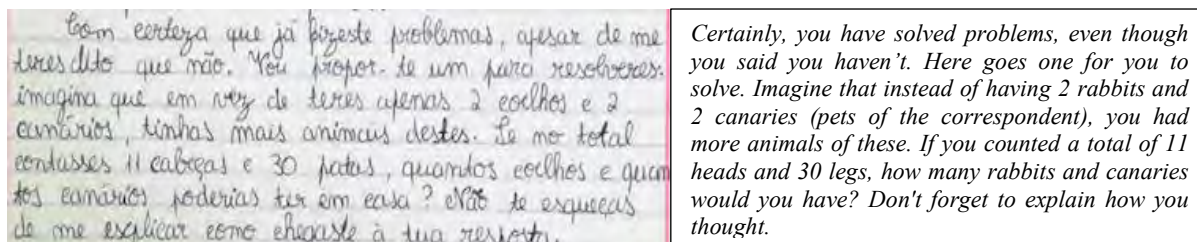 Com certeza que já fizeste problemas, apesar de me
teres dito que não. Vou propor-te um para resolveres.
imagina que em vez de teres apenas 2 coelhos e 2
canários, tinhas mais animais destes. Se no total
contasses 11 cabeças e 30 patas, quantos coelhos e quan
tos canários poderias ter em casa? Não te esqueças
de me explicar como chegaste à tua resposta.
Certainly, you have solved problems, even though
you said you haven't. Here goes one for you to
solve. Imagine that instead of having 2 rabbits and
2 canaries (pets of the correspondent), you had
more animals of these. If you counted a total of 11
heads and 30 legs, how many rabbits and canaries
would you have? Don't forget to explain how you
thought.